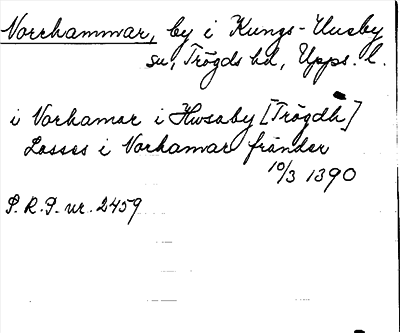 Norrhammar, by i Kungs-Husby
sn, Trögds hd, Upps. l.
i Norhamar i Hwsaby [Trögdh]
Lasses i Norhamar fränder
10/3 1390
S.R.P. nr. 2459